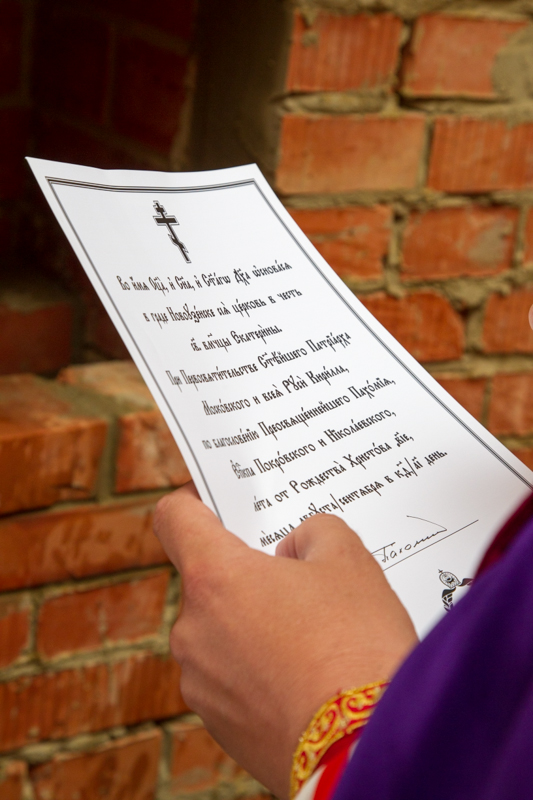 Во имя Оц҃а, и Сн҃а, и Ст҃агѡ Дх҃а ѡснована
в граде Новоузенске сїѧ церковь в честь
вм҃ц Екатерины.
При Первосвятительстве Свѧтѣйшего Патрїарха
Московского и всеѧ Руси Кирилла,
по благословенїю Преосвѧщеннѣйшего Пахомїѧ,
Еп҃кпа Покровского и Николаевского,
лѣта от Рождества Христова
месѧца августа/сентѧбрѧ в к҃д/а҃і день.
Пахомий